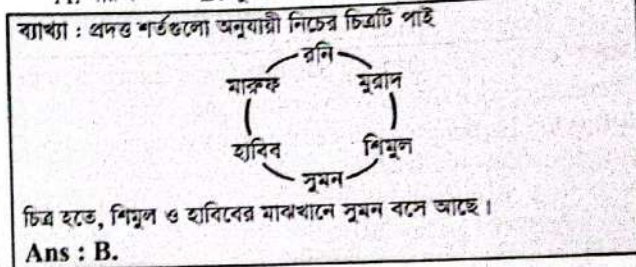 ব্যাখ্যা : প্রদত্ত শর্তগুলো অনুযায়ী নিচের চিত্রটি পাই
রনি
মারুফ মুরাদ
হাবিব শিমুল
সুমন
চিত্র হতে, শিমুল ও হাবিবের মাঝখানে সুমন বসে আছে।
Ans : B.